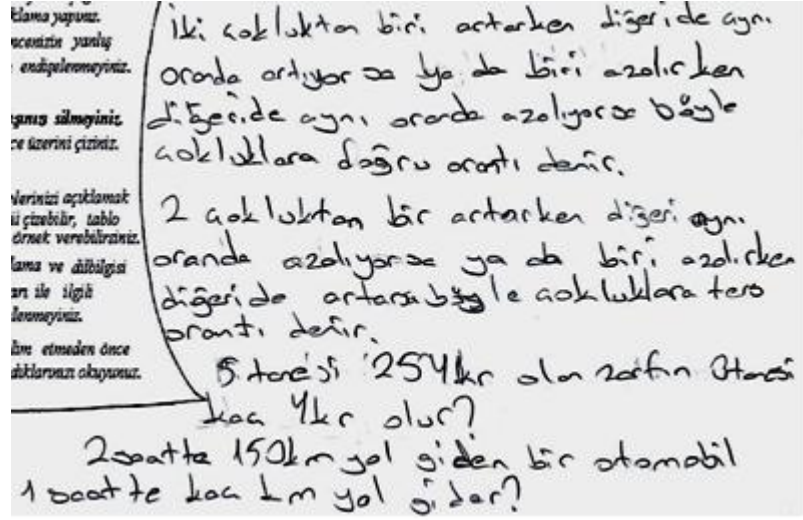 klama yapınız.
cenizin yanlış
endişelenmeyiniz.
silmeyiniz
ce üzerini çiziniz.
lerinizi açıklamak
çizebilir, tablo
örnek verebilirsiniz.
lama ve dilbilgisi
arı ile ilgili
lenmeyiniz.
lim etmeden önce
dıklarınızı okuyunuz.
İki çokluktan biri artarken diğeride aynı
oranda artıyorsa ya da biri azalırken
diğeride aynı oranda azalıyorsa böyle
çokluklara doğru orantı denir.
2 çokluktan bir artarken diğeri aynı
oranda azalıyorsa ya da biri azalırken
diğeride artarsa böyle çokluklara ters
orantı denir.
5 tanesi 25Ykr olan zarfın tanesi
kaç Ykr olur?
2 saatte 150km yol giden bir otomobil
1 saatte kaç km yol gider?